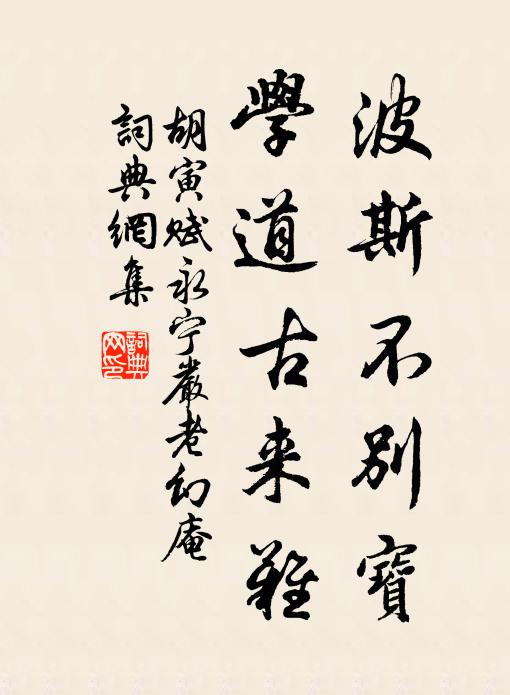 波斯不別寶
學道古来難
胡寅赋永宁嚴老幻庵
詞典網集
詞典
网印